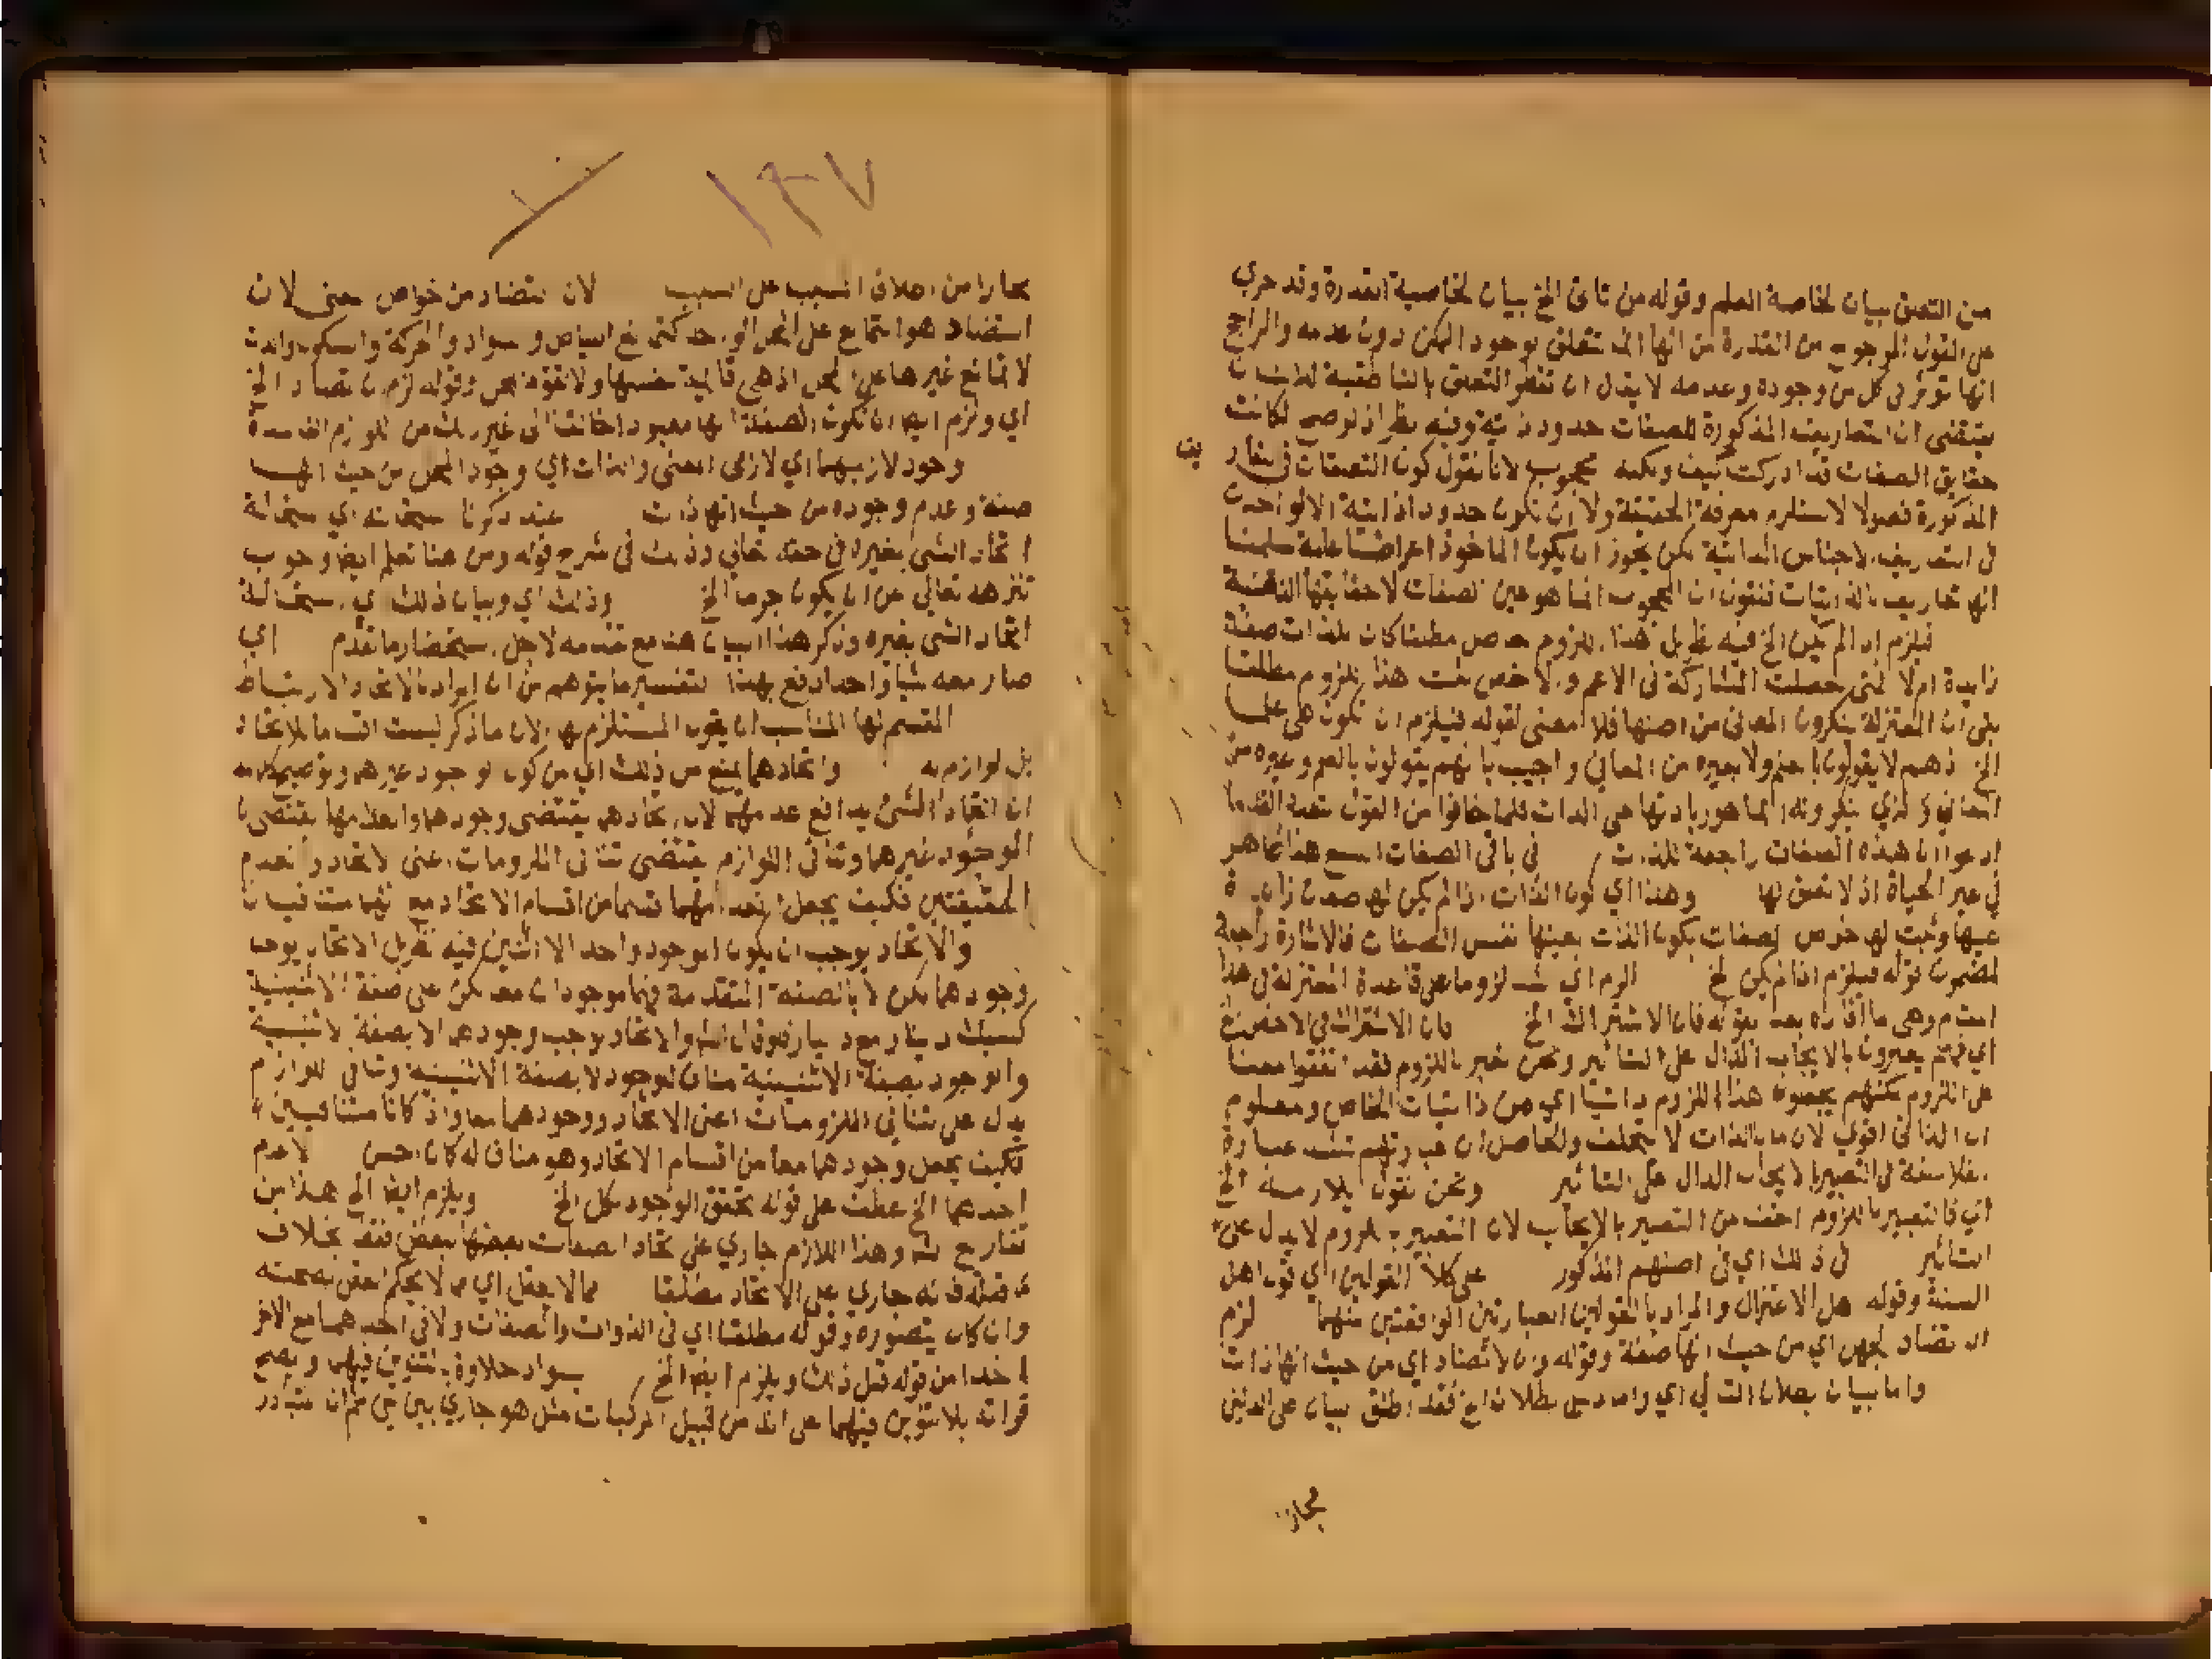 من التعلق بيان لخاصة العلم وقوله من تاتى الخ بيان لخاصية القدرة وقد جرى
على القول المرجوح من القدرة من انها انما تتعلق بوجود الممكن دون عدمه والراجح
انها توثر فى كل من وجوده وعدمه لا يقال ان
يقتضى ان التعاريف المذكورة للصفات حدود وفيه نظر اذ لو صح لكانت
حقايق الصفات قد ادركت كيف وكنه محجوب لانا نقول كون التعلقات فى
المذكورة فصولا لا يستلزم معرفة الحقيقة ولا ان تكون حدودا ذاتية الا لو اخدت
فى التعاريف الاجناس الذاتية لكن يجوز ان يكون الماخوذ اعراضا عامة سلمنا
انها تعاريف بالذاتيات فنقول ان المحجوب انما هو عين الصفات لا حقايقها الذهنية
فيلزم اذا لم يكن الخ فيه نظر بل هذا اللزوم حاصل مطلقا كان للذات صفة
زايدة ام لا فمتى حصلت المشاركة فى الاعم والاخص ثبت هذا اللزوم مطلقا
بقى ان المعتزلة ينكرون المعانى من اصلها فلا معنى لقوله فيلزم ان تكون هى علما
الخ اذ هم لا يقولون بالعلم ولا بغيره من المعانى واجيب بانهم يقولون بالعلم وغيره من
المعانى والذي ينكرونه انما هو زيادتها على الذات فلما خافوا من القول بتعدد القدما
ادعوا ان هذه الصفات راجعة للذات فى باقى الصفات السبع هذا ظاهر
فى غير الحياة اذ لا تعلق لها وهذا اي كون الذات اذا لم يكن لها صفات زايدة
عليها وثبت لها خواص الصفات بكون الذات بعينها نفس الصفات فالاشارة راجعة
لمضمون قوله فيلزم اذا لم يكن الخ الزم اي اشد لزوما على قاعدة المعتزلة فى هذا
المقام وهى ما افاده بعد بقوله فان الاشتراك الخ فان الاشتراك فى الاخص الخ
اي فهم يعبرون بالايجاب الدال على التاثير ونحن نعبر باللزوم فقد اتفقوا معنا
على اللزوم لكنهم يجعلون هذا اللزوم ذاتيا اي من ذاتيات الخاص ومعلوم
ان الذاتى اقوي لان ما بالذات لا يتخلف والحاصل ان عبارتهم تشبه عبارة
الفلاسفة فى التعبير بالايجاب الدال على التاثير ونحن نقول بالملازمة الخ
اي فالتعبير باللزوم اخف من التعبير بالايجاب لان التعبير باللزوم لا يدل على
التاثير فى ذلك اي فى اصلهم المذكور على كلا القولين اي قول اهل
السنة وقوله اهل الاعتزال والمراد بالقولين العبارتين الواقعتين منهما لزم
ان تضاد الجهل اي من حيث انها صفة وقوله وان لا تضاد اي من حيث انها ذات
واما بيان بطلان التالي اي واما دليل بطلانه الخ فقد اطلق بيان على الدليل
مجازا
١٣٧
مجازا من اطلاق المسبب على السبب لان التضاد من خواص المعنى لان
التضاد هو التمانع على المحل الواحد كتمانع البياض والسواد والحركة والسكون والذات
لا تمانع غيرها على المحل اذ هى قايمة بنفسها ولا تقوم بمحل وقوله لزم ان تضاد الخ
اي ولزم ايضا ان تكون الصفة الها معبودا خالقا الى غير ذلك من اللوازم الفاسدة
وجود لازميهما اي لازمى المعنى والذات اي وجود المحل من حيث انها
صفة وعدم وجوده من حيث انها ذات عند ذكرنا استحالته اي استحالة
اتحاد الشي بغيره فى حقه تعالي وذلك فى شرح قوله ومن هنا تعلم ايضا وجوب
تنزهه تعالي عن ان يكون جرما الخ وذلك اي وبيان ذلك اي استحالة
اتحاد الشي بغيره وذكر هذا البيان هنا مع تقدمه لاجل استحضار ما تقدم اي
صار معه شيا واحدا دفع بهذا التفسير ما يتوهم من ان المراد بالاتحاد الارتباط
المقسم لها المناسب ان يقول المستلزم لها لان ما ذكر ليست اقساما للاتحاد
بل لوازم له واتحادهما يمنع من ذلك اي من كون الموجود غيرهما وتوضيح كلامه
ان اتحاد الشي يدافع عدمهما لان اتحادهما يقتضى وجودهما وانعدامهما يقتضى ان
الموجود غيرهما وتنافى اللوازم يقتضى تنافى الملزومات اعنى الاتحاد وانعدام
الحقيقتين فكيف يجعل انعدامهما قسما من اقسام الاتحاد مع انهما متنافيان
والاتحاد يوجب ان يكون الموجود واحد الا اثنين فيه نظر بل الاتحاد يوجب
وجودهما لكن لا بالصفة المتقدمة فهما موجودان معا لكن على صفة الاثنينية
كسبك دينار مع دينار فقولان والاتحاد يوجب وجودهما لا بصفة الاثنينية
والوجود بصفة الاثنينية مناف للوجود لا بصفة الاثنينية وتنافى اللوازم
يدل على تنافى الملزومات اعنى الاتحاد ووجودهما معا واذ كانا متنافيين
فكيف يجعل وجودهما معا من اقسام الاتحاد وهو مناف له كان احسن لا عدم
احدهما الخ عطف على قوله تحقق الوجود لكل الخ ويلزم ايضا الخ هذا من
تفاريع وهذا اللازم جاري على اتحاد الصفات بعضها ببعض فقط بخلاف
ما قبله فانه جاري على الاتحاد مطلقا مما لا يعقل اي مما لا يحكم العقل بصحته
وان كان يتصوره وقوله مطلقا اي فى الذوات والصفات ولا فى احدهما مع الاخر
اخذا من قوله قبل ذلك ويلزم ايضا الخ سواد حلاوة بالتنوين فيهما ويصح
قراته بلا تنوين فيهما على انه من قبيل المركبات مثل هو جاري بيت بيت ثم ان المتبادر